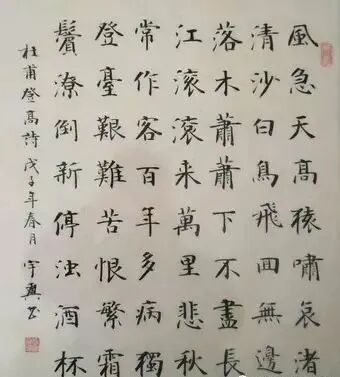 風急天高猿嘯哀渚
清沙白鳥飛囬無邊
落木蕭蕭下不盡長
江滚滚来萬里悲秋
常作客百年多病獨
登臺艱難苦恨繁霜
鬢潦倒新停浊酒杯
杜甫登高詩戊子年春月宇興书